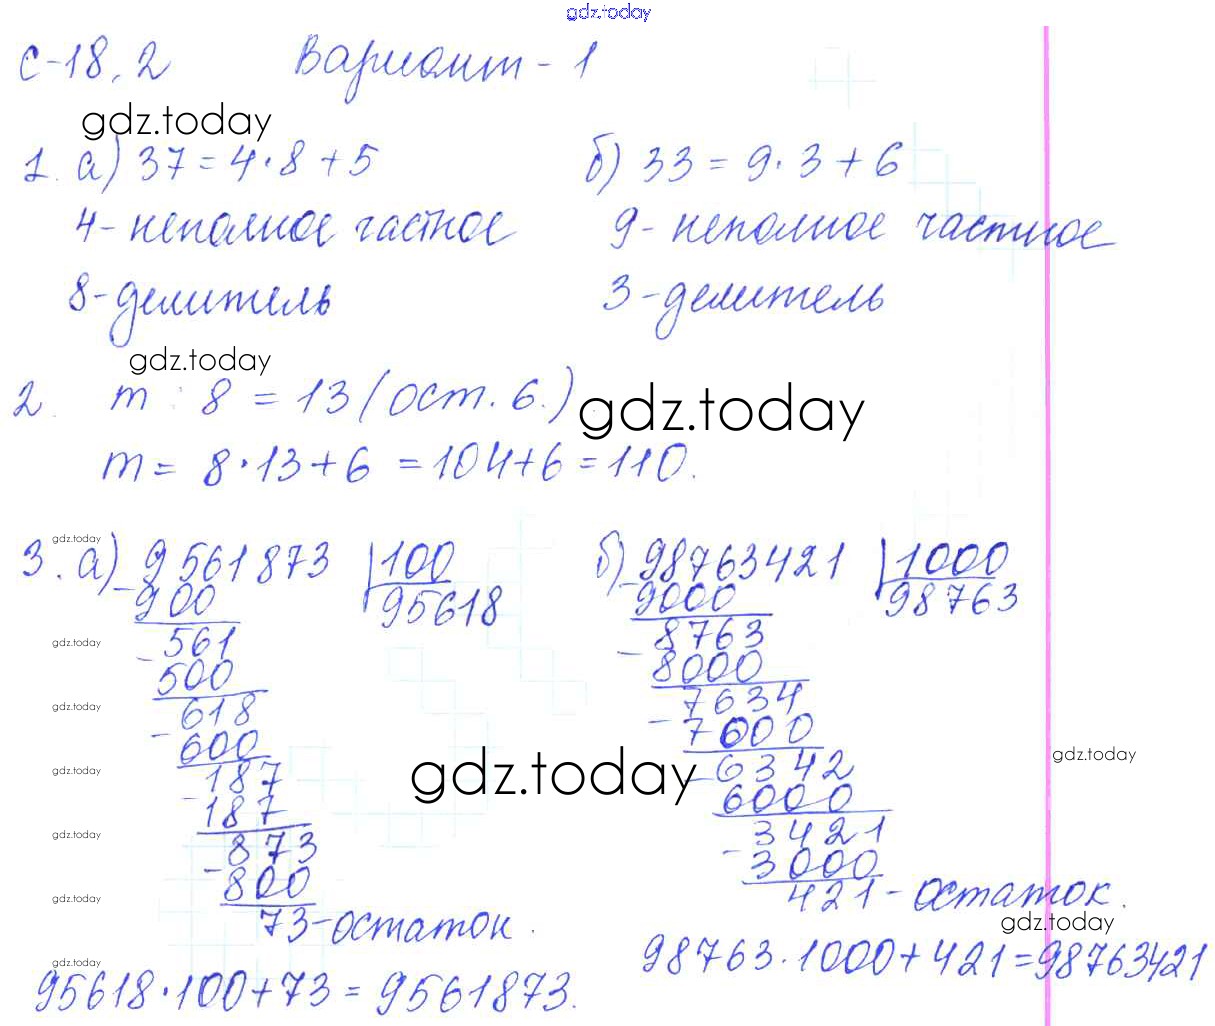 gdz.today
С-18.2 Вариант - 1
gdz.today
1. а) 37 = 4·8 + 5 б) 33 = 9·3 + 6
4 - неполное частное 9 - неполное частное
8 - делитель 3 - делитель
gdz.today
2. m : 8 = 13 (ост. 6.) gdz.today
m = 8·13 + 6 = 104 + 6 = 110.
gdz.today
3. а) 9561873 | 100 б) 98763421 | 1000
- 900 95618 - 9000 98763
gdz.today - 561 8763
500 - 8000
gdz.today - 618 7634
600 - 7000
gdz.today - 187 gdz.today - 6342 gdz.today
187 6000
gdz.today 873 - 3421
- 800 3000
gdz.today 73 - остаток. 421 - остаток.
gdz.today
gdz.today
95618·100 + 73 = 9561873. 98763·1000 + 421 = 98763421